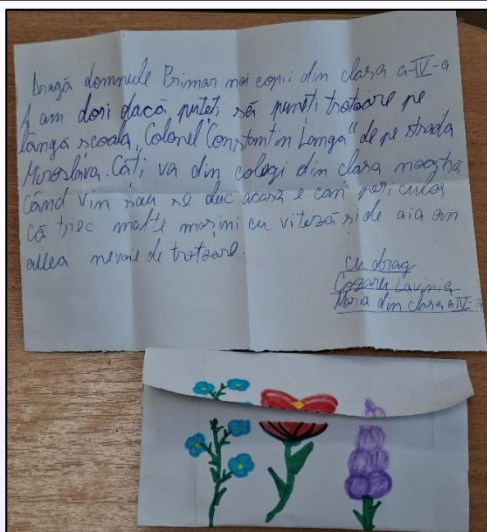 Dragă domnule Primar noi copii din clasa a-IV-a
A am dori dacă puteți să puneți trotoare pe
lângă școala „Colonel Constantin Langa" de pe strada
Miroslava. Câți va din colegi din clasa noastră
când vin sau se duc acasă e cam periculos
că trec multe mașini cu viteză și de aia am
avea nevoie de trotoare.
cu drag
Lavinia
Maria din clasa a IV-a